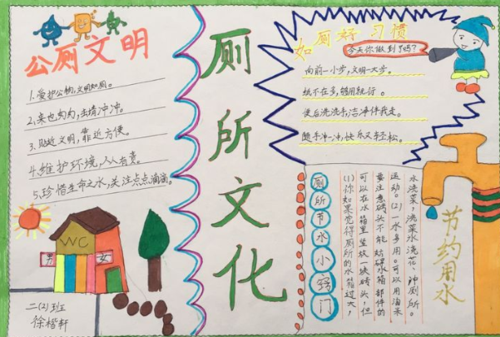 公厕文明
1.爱护公物,文明如厕。
2.来也匆匆,去精冲冲。
3.贴近文明,靠近方便。
4.维护环境,人人有责。
5.珍惜生命之水,关注点点滴滴。
WC
男
女
二(2)班
徐楷轩
厕所文化
如厕好习惯
今天你做到了吗?
向前一小步,文明一大步。
纸不在多,够用就行。
便后洗洗手,洁净伴我走。
随手冲一冲,快乐又轻松。
厕所节水小窍门
(1)你如果觉得厕所的水箱过大,
可以在水箱里竖放一块砖头,但
要注意砖头不能妨碍水箱部件的
运动。(2)一水多用。可以用淘米
水洗菜,洗菜水浇花、冲厕所。
节约用水